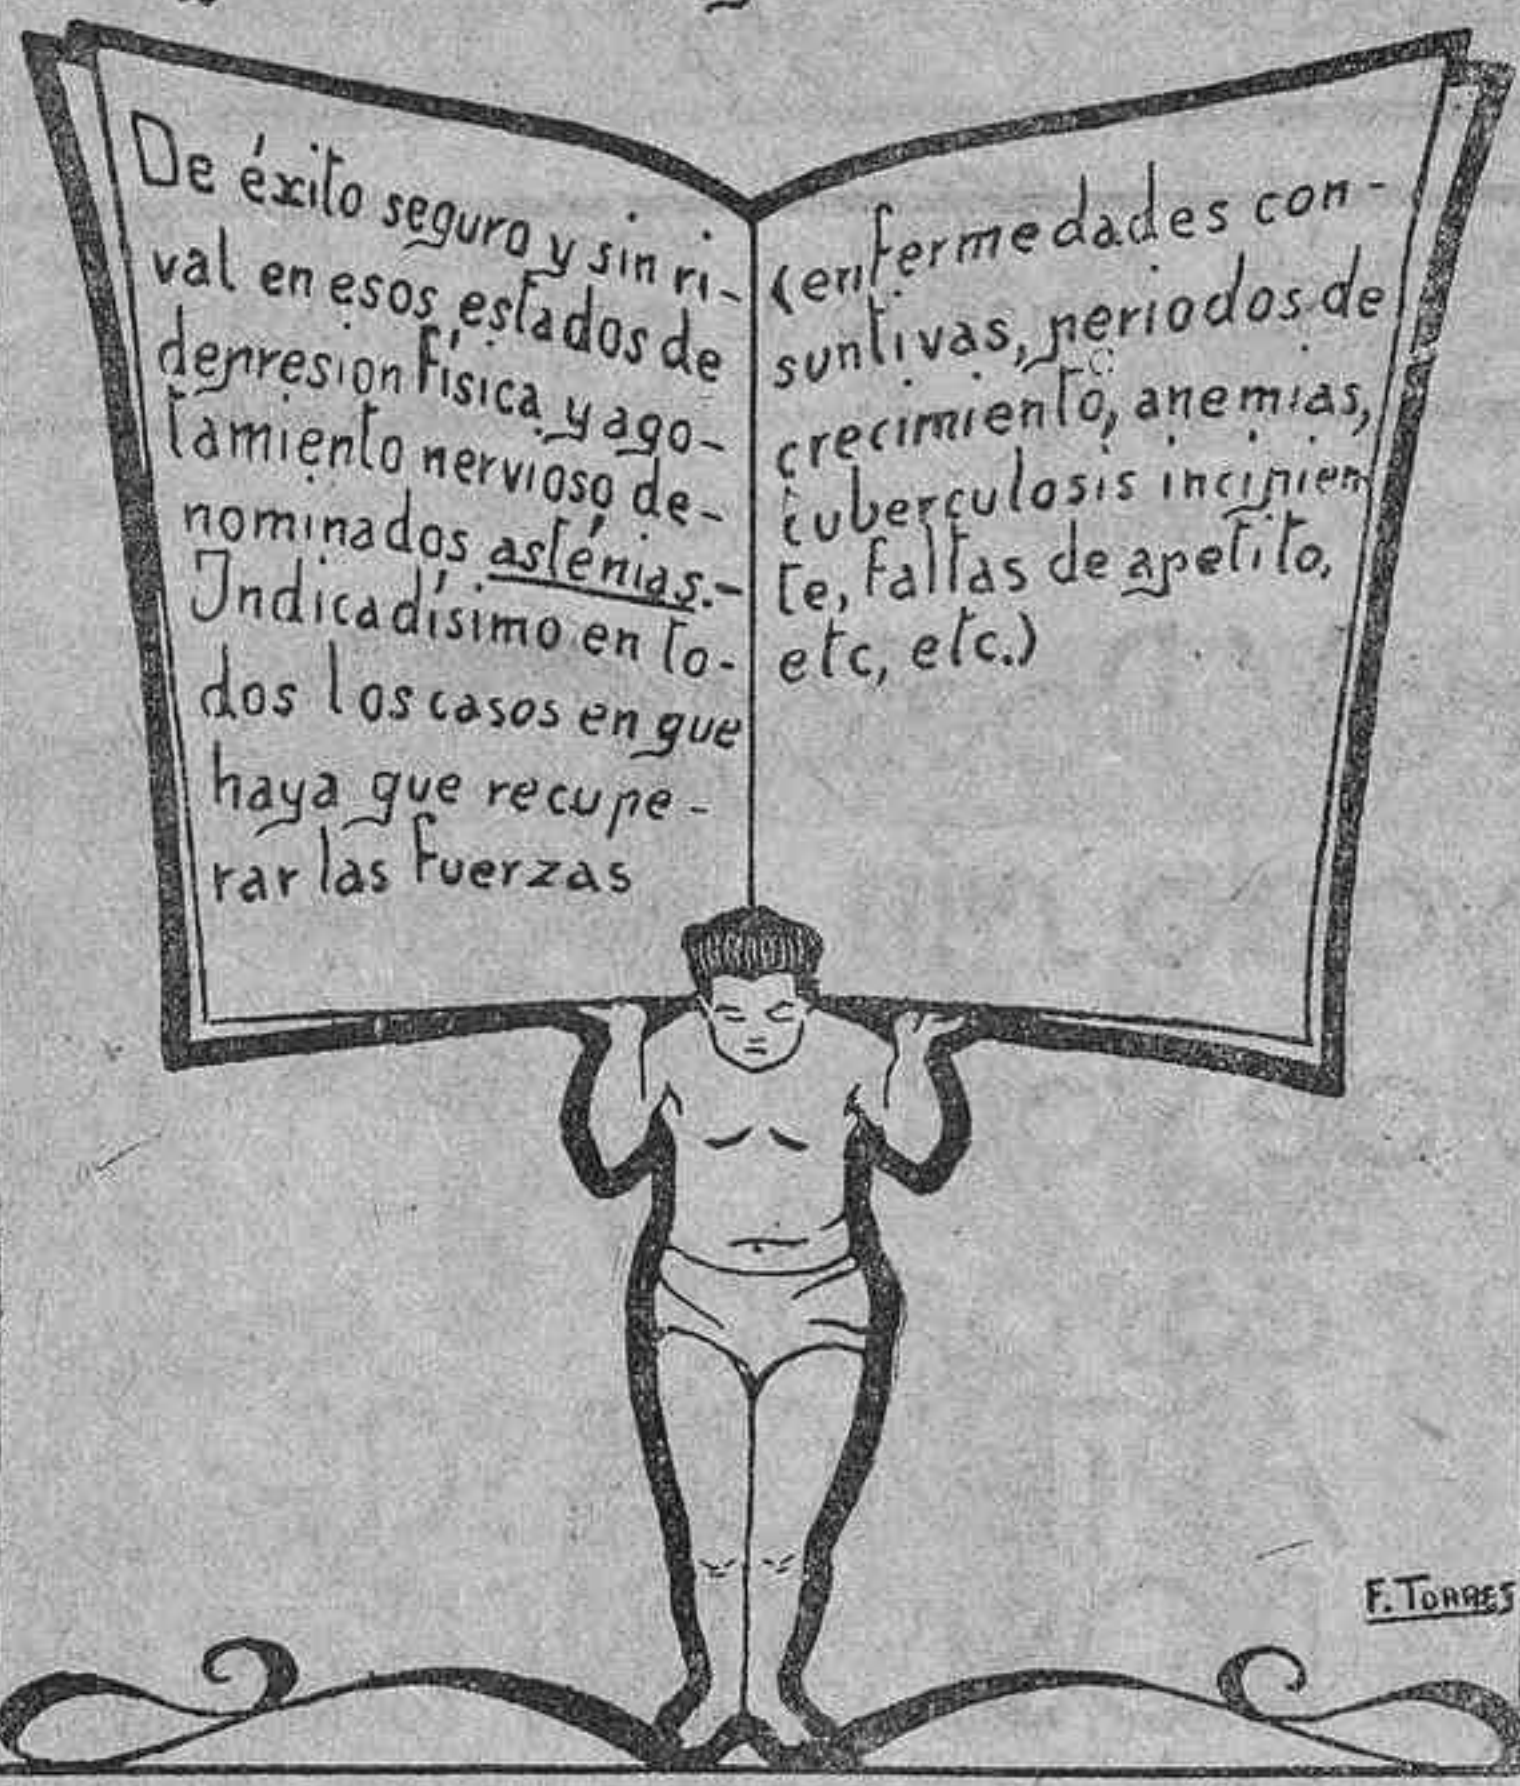 De éxito seguro y sin ri-
val en esos estados de
depresion física y ago-
tamiento nervioso de-
nominados asténias.-
Indicadísimo en to-
dos los casos en que
haya que recupe-
rar las fuerzas
(enfermedades con-
suntivas, periodos de
crecimiento, anemias,
tuberculosis incipien
te, faltas de apetito,
etc, etc.)
F. TORRES